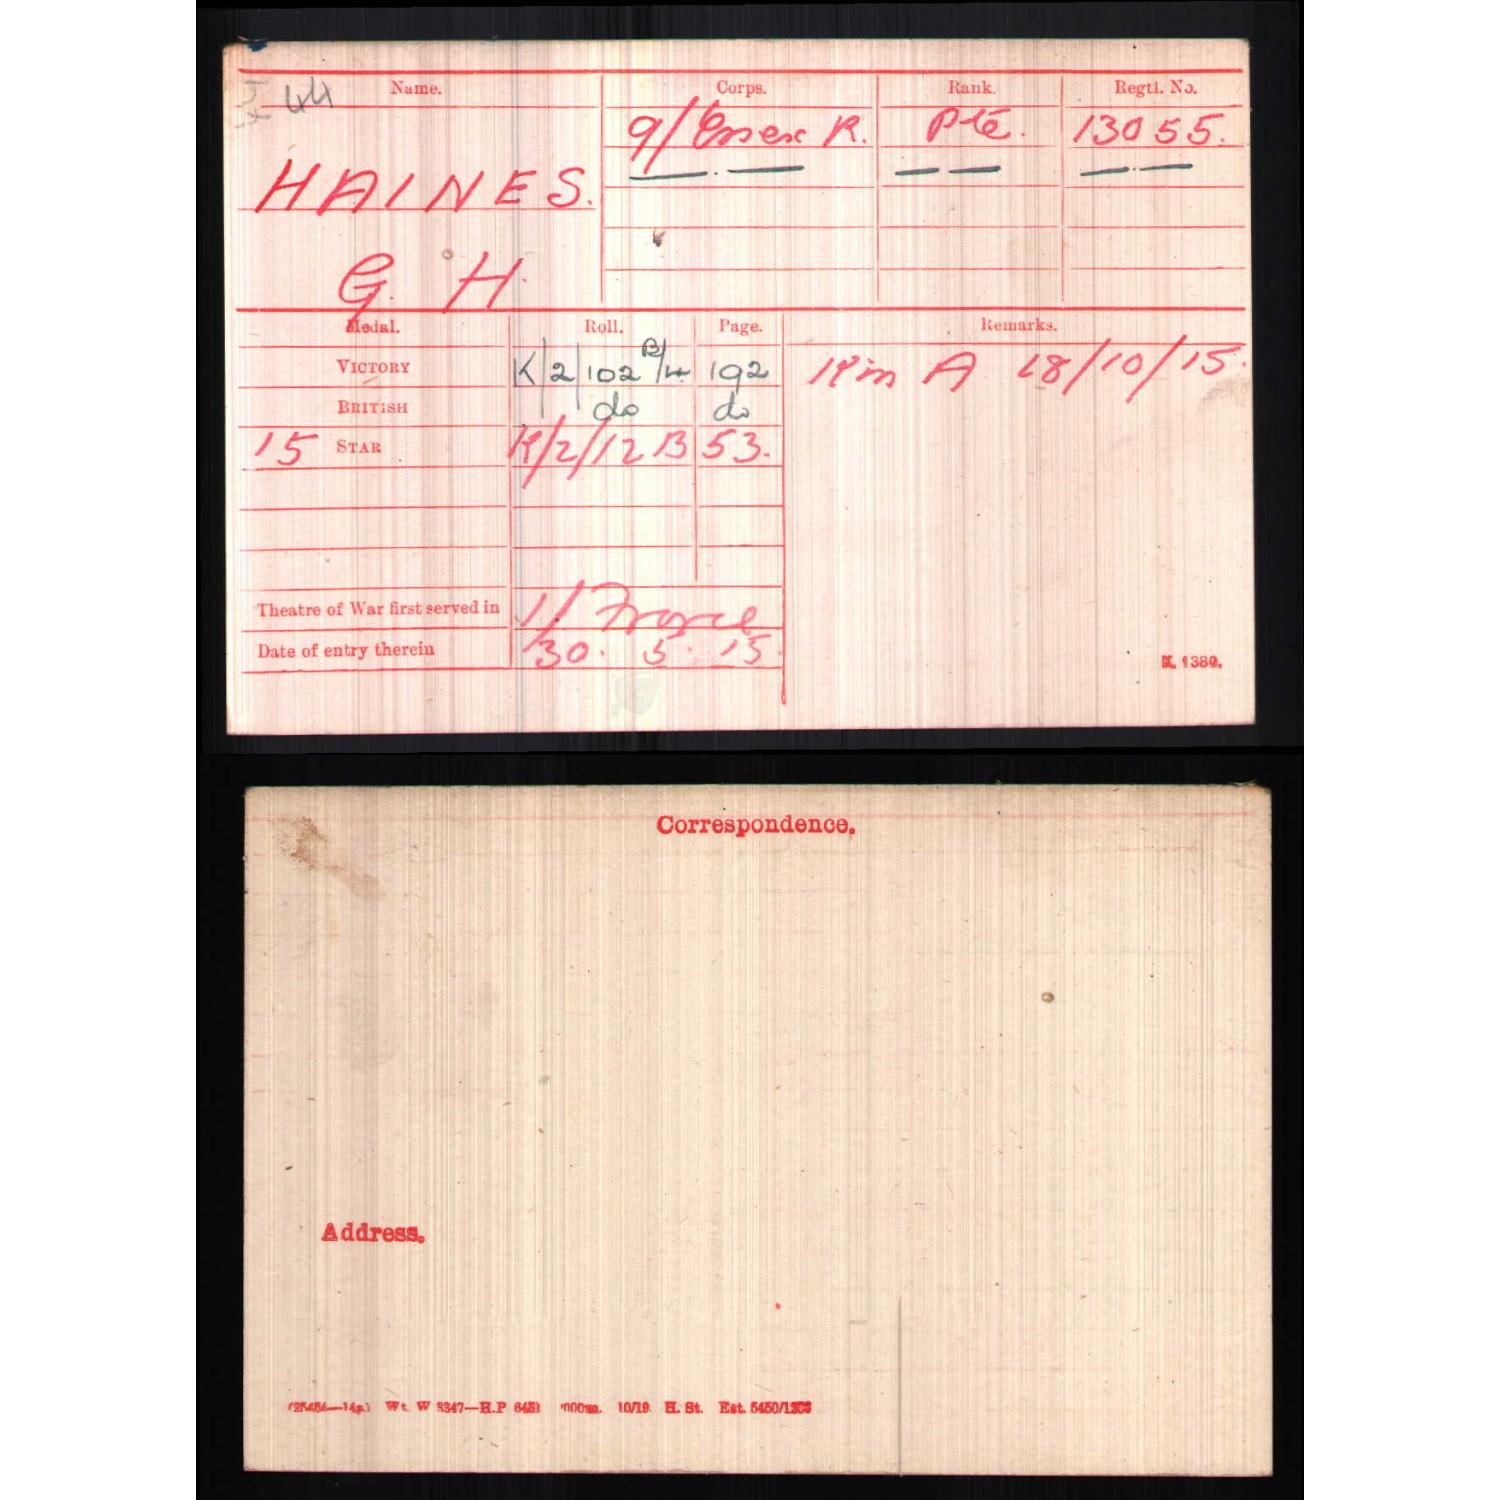 44 Name. Corps. Rank. Regtl. No.
9/Essex R. Pte. 13055.
HAINES.
G. H.
Medal. Roll. Page. Remarks.
VICTORY K/2/102 B/4 192 K in A 18/10/15.
BRITISH do do
15 STAR K/2/12 B 53.
Theatre of War first served in 1/ France
Date of entry therein 30. 5. 15.
K. 1380.
Correspondence.
Address.
Wt. W 3347—H.P 10/19 H. St. Est.